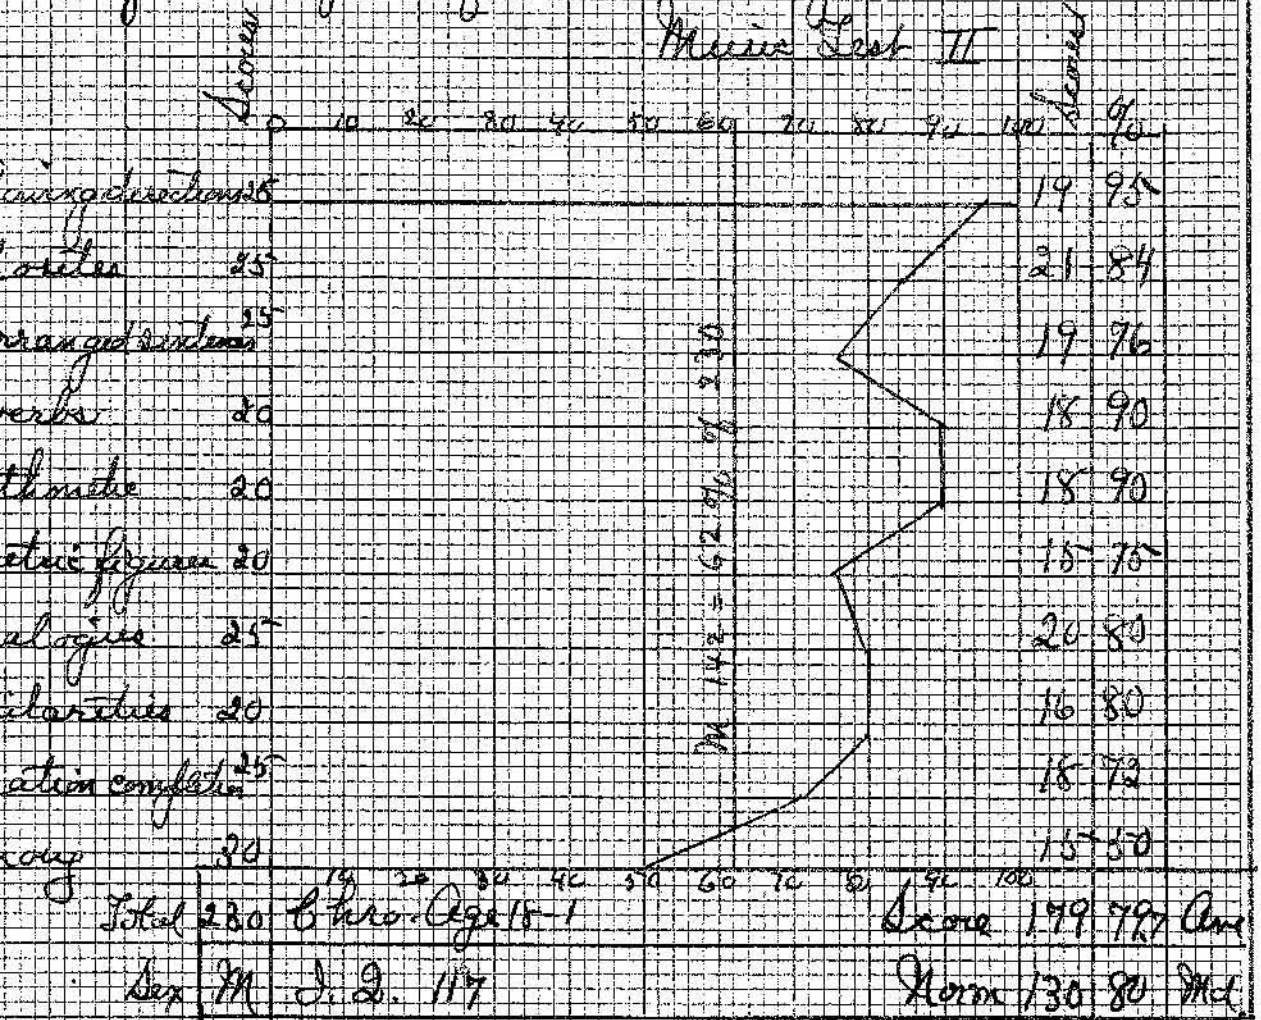 Music Test II
Scores
Scores %
0 10 20 30 40 50 60 70 80 90 100
owing directions 25 19 95
osites 25 21 84
rranged sentences 25 19 76
verbs 20 18 90
thmetic 20 18 90
etric figures 20 15 75
alogies 25 20 80
ilarities 20 16 80
ation completion 25 18 72
30 15 50
M 142 = 62% of 230
10 20 30 40 50 60 70 80 90 100
Total 230 Chro. Age 18-1 Score 179 79.7 Ave
Sex M I. Q. 117 Norm 130 80 Md.